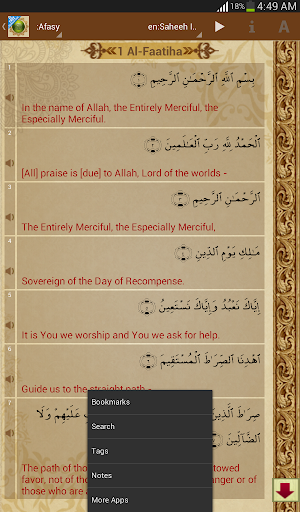 18% 4:49 AM
:Afasy en:Saheeh I..
1 Al-Faatiha
1
بِسْمِ ٱللَّهِ ٱلرَّحْمَـٰنِ ٱلرَّحِيمِ ﴿١﴾
In the name of Allah, the Entirely Merciful, the
Especially Merciful.
2
ٱلْحَمْدُ لِلَّهِ رَبِّ ٱلْعَـٰلَمِينَ ﴿٢﴾
[All] praise is [due] to Allah, Lord of the worlds -
3
ٱلرَّحْمَـٰنِ ٱلرَّحِيمِ ﴿٣﴾
The Entirely Merciful, the Especially Merciful,
4
مَـٰلِكِ يَوْمِ ٱلدِّينِ ﴿٤﴾
Sovereign of the Day of Recompense.
5
إِيَّاكَ نَعْبُدُ وَإِيَّاكَ نَسْتَعِينُ ﴿٥﴾
It is You we worship and You we ask for help.
6
ٱهْدِنَا ٱلصِّرَٰطَ ٱلْمُسْتَقِيمَ ﴿٦﴾
Guide us to the straight path -
7
صِرَٰطَ ٱلَّذِينَ عَلَيْهِمْ وَلَا
ٱلضَّآلِّينَ ﴿٧﴾
The path of tho towed
favor, not of tho anger or of
those who are a
Bookmarks
Search
Tags
Notes
More Apps